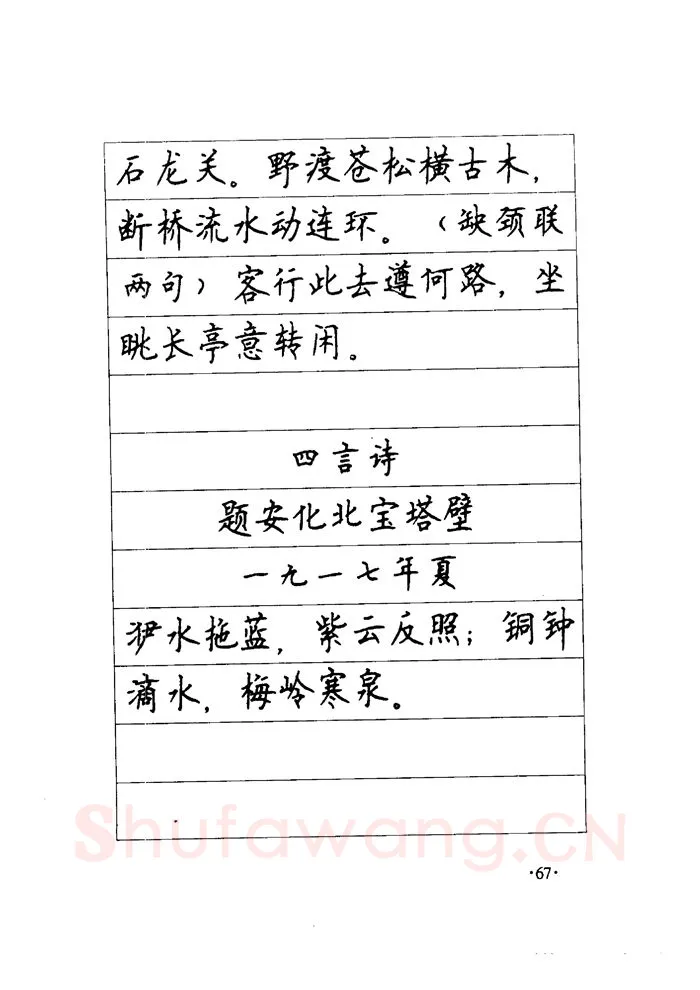 石龙关。野渡苍松横古木，
断桥流水动连环。（缺颈联
两句）客行此去遵何路，坐
眺长亭意转闲。
四言诗
题安化北宝塔壁
一九一七年夏
洢水拖蓝，紫云反照；铜钟
滴水，梅岭寒泉。
Shufawang.CN
·67·